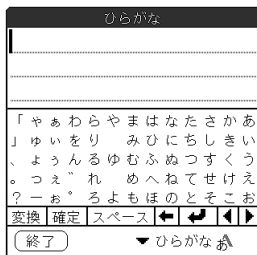 ひらがな
「 ゃ ぁ わ ら や ま は な た さ か あ
」 ゅ ぃ を り み ひ に ち し き い
、 ょ ぅ ん る ゆ む ふ ぬ つ す く う
。 っ ぇ ゛ れ め へ ね て せ け え
？ ー ぉ ゜ ろ よ も ほ の と そ こ お
変換 確定 スペース
終了 ひらがな あ